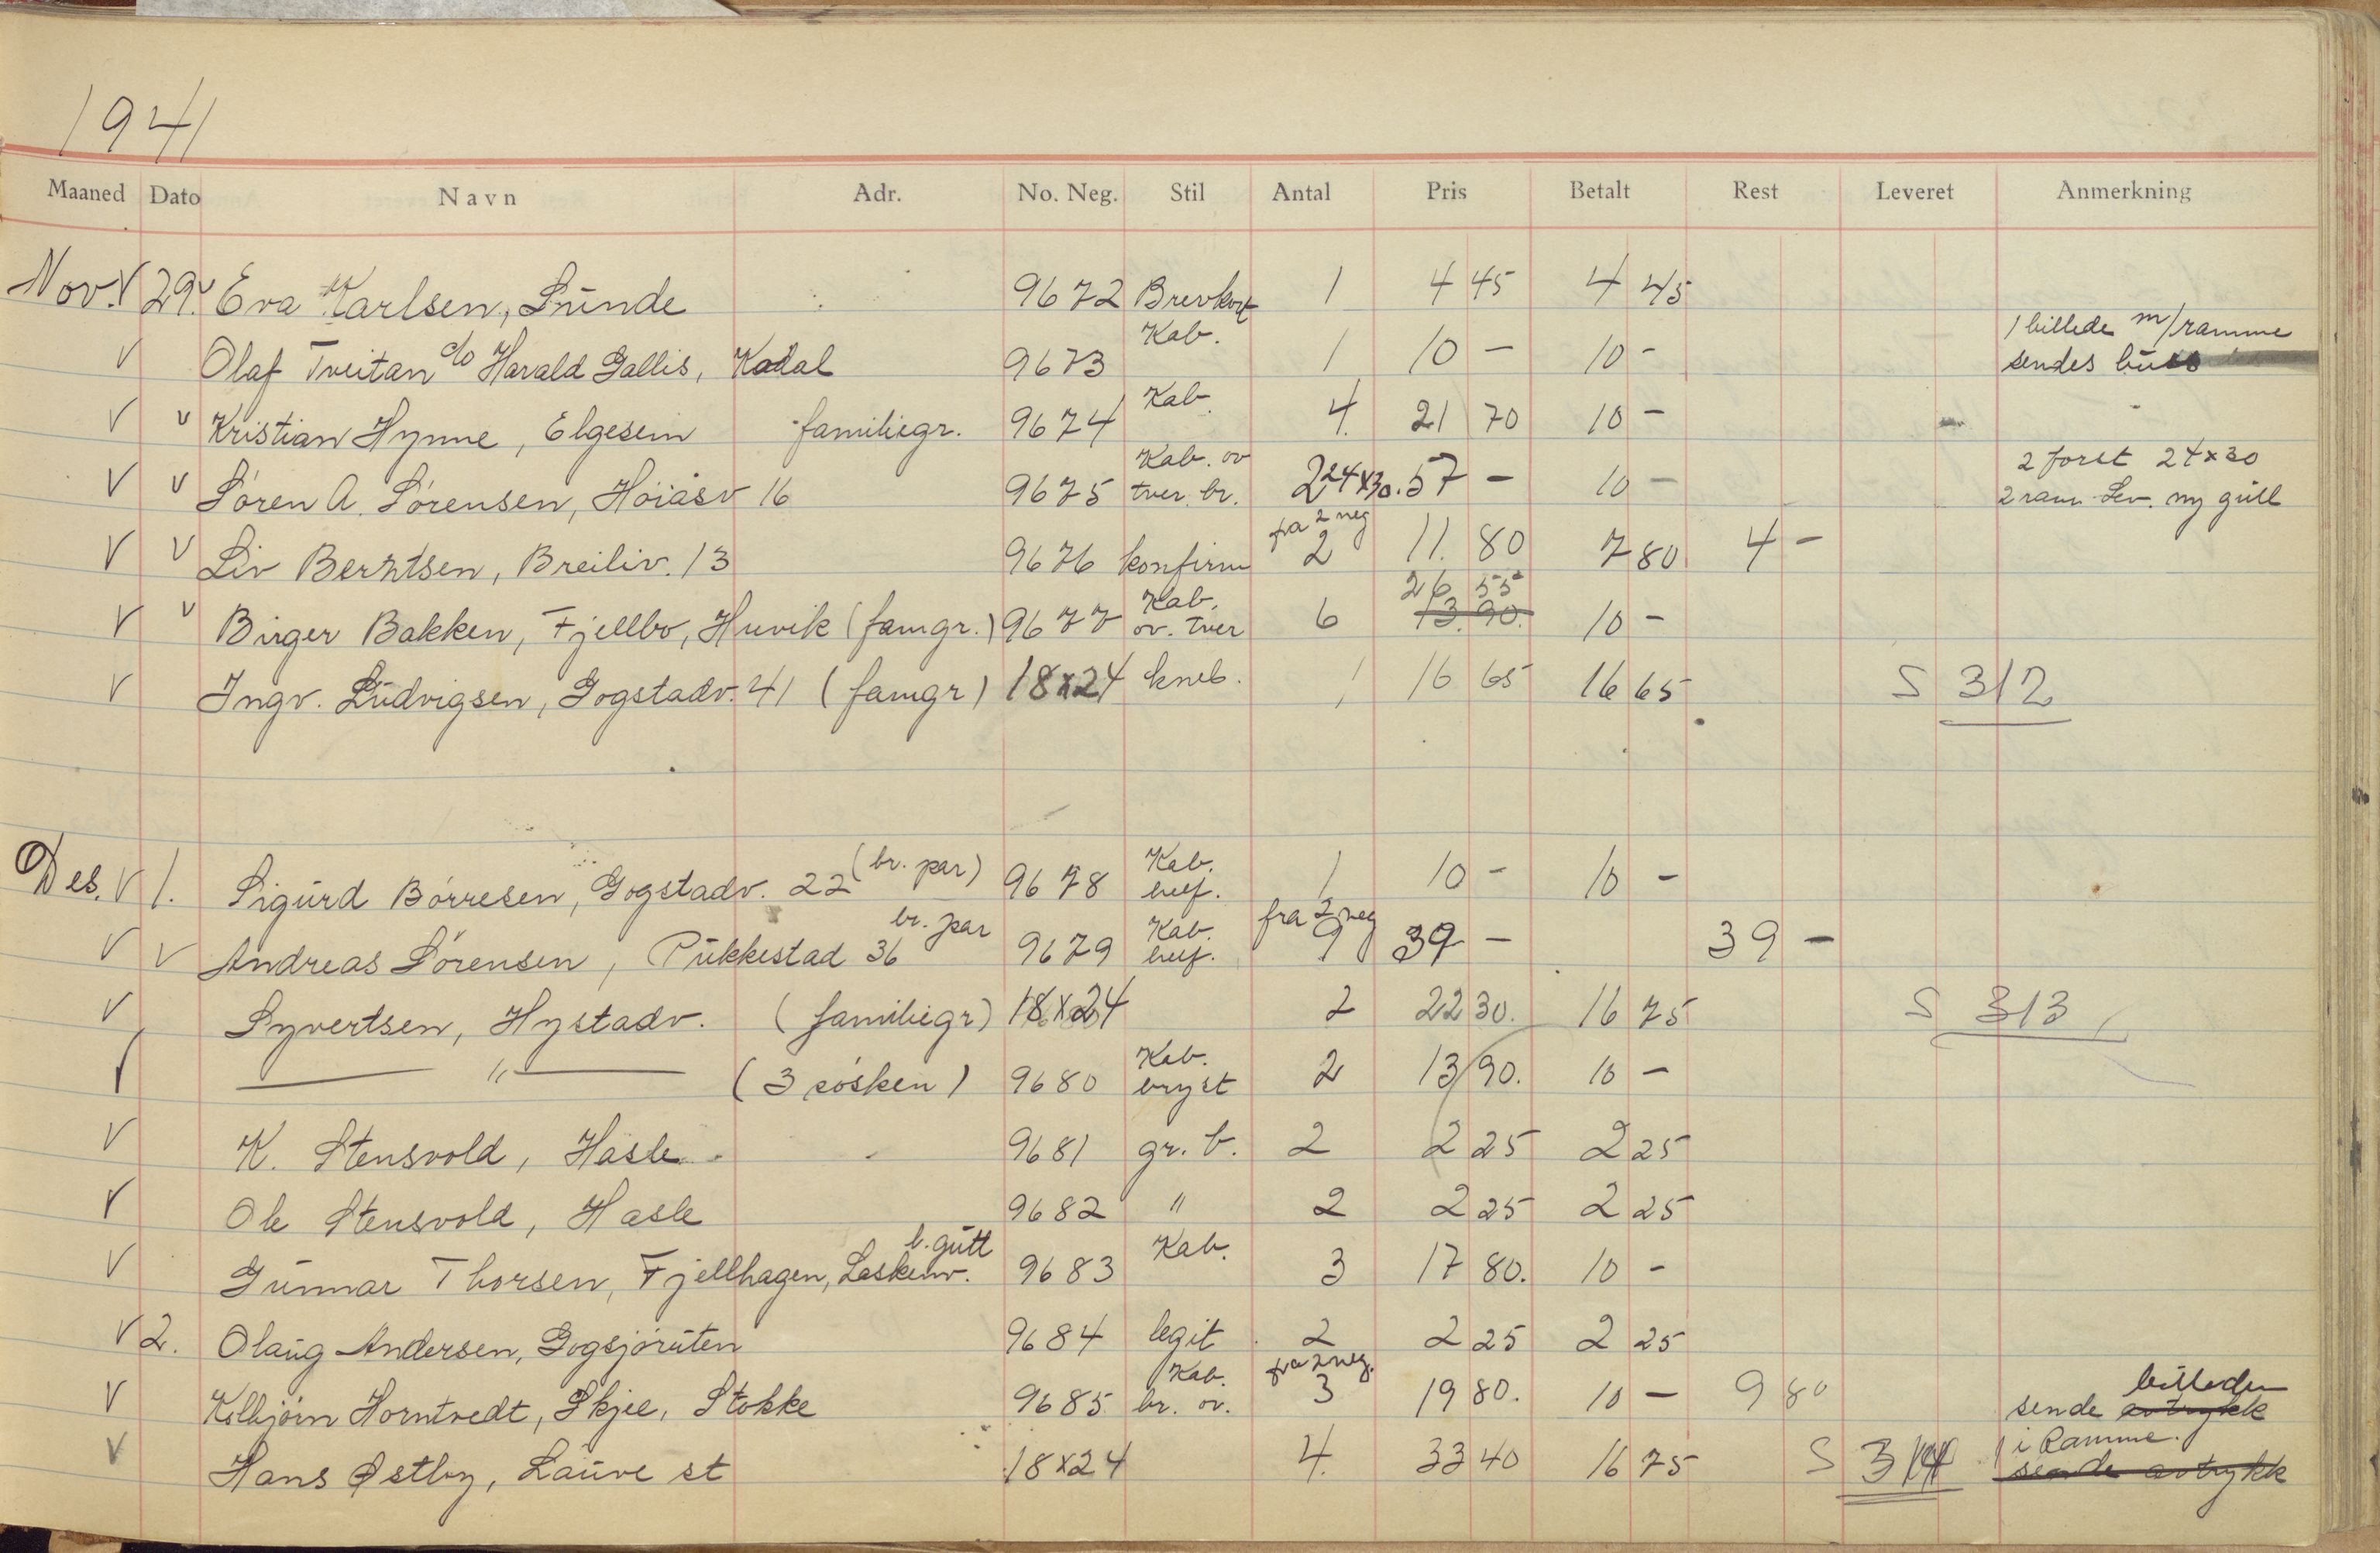 1941
Maaned Dato Navn Adr. No. Neg. Stil Antal Pris Betalt Rest Leveret Anmerkning
Nov. V 29. v Eva Karlsen, Lunde 9672 Brevkort 1 4 45 4 45
V Olaf Tveitan c/o Harald Gallis, Kodal 9673 Kab. 1 10 - 10 - 1 billede m/ramme sendes buss
V v Kristian Hynne, Elgesem familiegr. 9674 Kab. 4. 21 70 10 -
V v Sören A. Sörensen, Höiåsv 16 9675 Kab. ov tver. br. 2 24x30. 57 - 10 - 2 forst 24x30 2 ram Lev. ny gull
V v Liv Berntsen, Breiliv. 13 9676 konfirm fra 2 neg 2 11. 80 7 80 4 -
V v Birger Bakken, Fjellbo, Huvik (famgr.) 9677 Kab. ov. tver 6 26 55 13.90. 10 -
V Ingv. Ludvigsen, Gogstadv. 41 (famgr) 18x24 kneb. 1 16 65 16 65 S 312
Des. V 1. Sigurd Börresen, Gogstadv. 22 (br. par) 9678 Kab. helf. 1 10 - 10 -
V V Andreas Sörensen, Pukkestad 36 br. par 9679 Kab. helf. fra 2 neg 9 39 - 39 -
V Syvertsen, Hystadv. (familiegr) 18x24 2 22 30. 16 75 S 313
V — " — (3 sösken) 9680 Kab. bryst 2 13 90. 10 -
V K. Stensvold, Hasle 9681 gr. b. 2 2 25 2 25
V Ole Stensvold, Hasle 9682 " 2 2 25 2 25
V Gunnar Thorsen, Fjellhagen, Laskenv. l. gutt 9683 Kab. 3 17 80. 10 -
V 2. Olaug Andersen, Gogsjöruten 9684 legit 2 2 25 2 25
V Kolbjörn Horntvedt, Skjee, Stokke 9685 Kab. br. ov. fra 2 neg. 3 19 80. 10 - 9 80 sende avtrykk billeder
V Hans Østby, Lauve st 18x24 4. 33 40 16 75 S 314 1 i Ramme. sende avtrykk